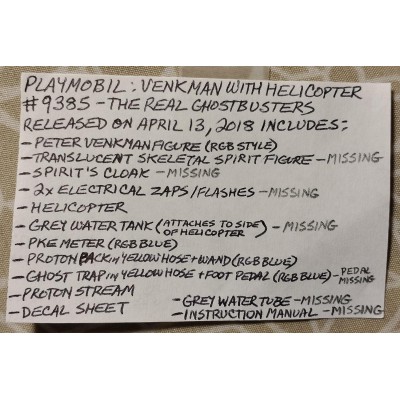 PLAYMOBIL: VENKMAN WITH HELICOPTER
#9385 - THE REAL GHOSTBUSTERS
RELEASED ON APRIL 13, 2018 INCLUDES:
- PETER VENKMAN FIGURE (RGB STYLE)
- TRANSLUCENT SKELETAL SPIRIT FIGURE - MISSING
- SPIRIT'S CLOAK - MISSING
- 2X ELECTRICAL ZAPS/FLASHES - MISSING
- HELICOPTER
- GREY WATER TANK (ATTACHES TO SIDE OF HELICOPTER) - MISSING
- PKE METER (RGB BLUE)
- PROTON PACK in YELLOW HOSE + WAND (RGB BLUE)
- GHOST TRAP in YELLOW HOSE + FOOT PEDAL (RGB BLUE) - PEDAL MISSING
- PROTON STREAM
- DECAL SHEET
- GREY WATER TUBE - MISSING
- INSTRUCTION MANUAL - MISSING